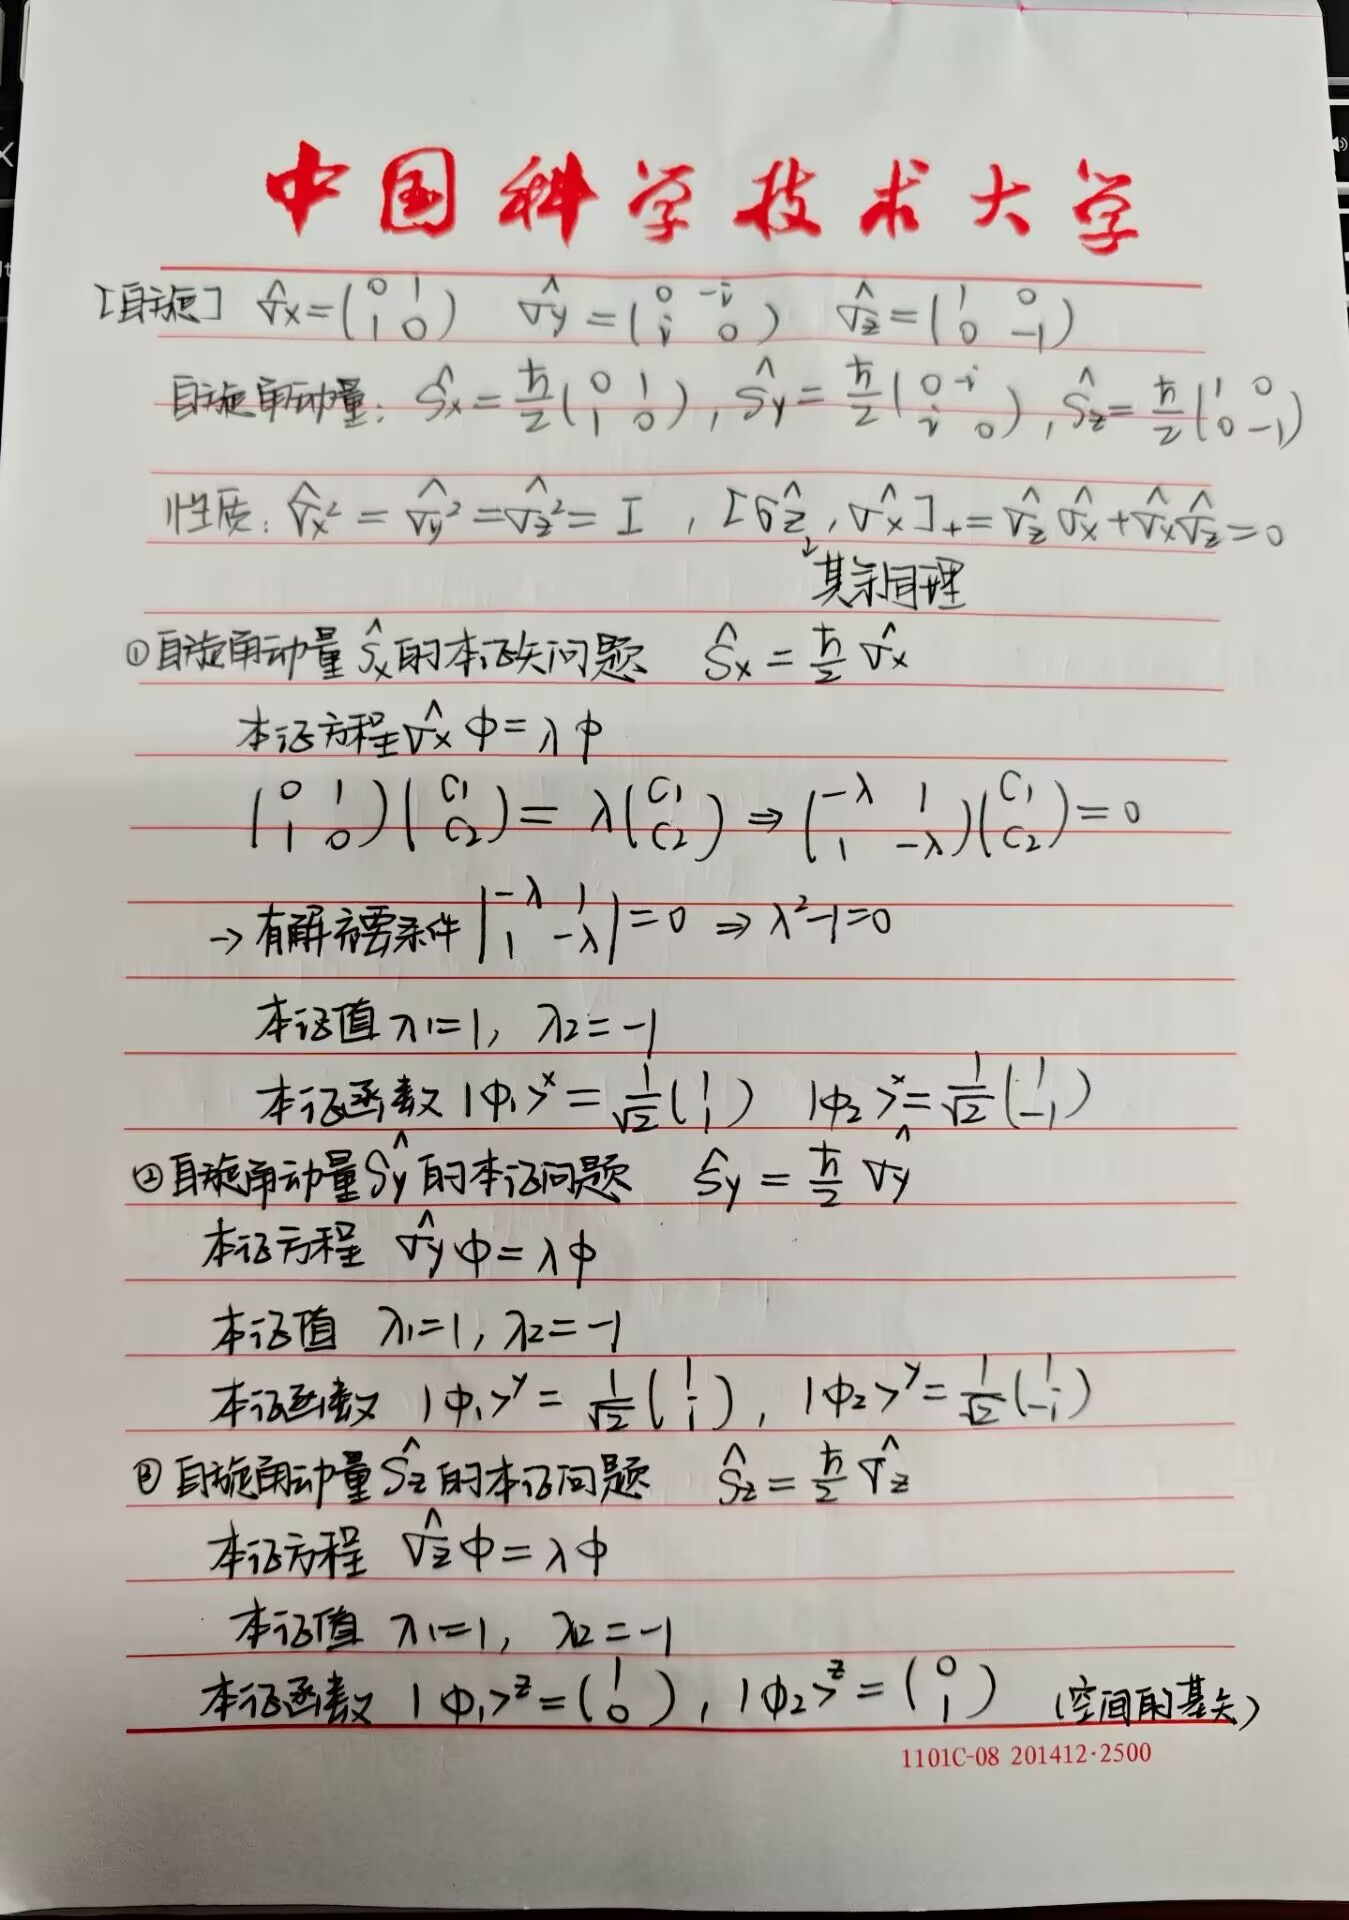 中国科学技术大学
[自旋] σ̂x=(0 1; 1 0) σ̂y=(0 -i; i 0) σ̂z=(1 0; 0 -1)
自旋角动量: Ŝx=ħ/2(0 1; 1 0), Ŝy=ħ/2(0 -i; i 0), Ŝz=ħ/2(1 0; 0 -1)
性质: σ̂x²=σ̂y²=σ̂z²=I, [σ̂z, σ̂x]₊=σ̂zσ̂x+σ̂xσ̂z=0
↓其余同理
①自旋角动量Ŝx的本征矢问题 Ŝx=ħ/2 σ̂x
本征方程σ̂xφ=λφ
(0 1; 1 0)(C1; C2)=λ(C1; C2)⇒(-λ 1; 1 -λ)(C1; C2)=0
→有解需要条件|-λ 1; 1 -λ|=0 ⇒λ²-1=0
本征值λ1=1, λ2=-1
本征函数|φ1>ˣ=1/√2(1; 1) |φ2>ˣ=1/√2(1; -1)
②自旋角动量Ŝy的本征问题 Ŝy=ħ/2 σ̂y
本征方程 σ̂yφ=λφ
本征值 λ1=1, λ2=-1
本征函数 |φ1>ʸ=1/√2(1; i), |φ2>ʸ=1/√2(1; -i)
③自旋角动量Ŝz的本征问题 Ŝz=ħ/2 σ̂z
本征方程 σ̂zφ=λφ
本征值 λ1=1, λ2=-1
本征函数 |φ1>ᶻ=(1; 0), |φ2>ᶻ=(0; 1) (空间的基矢)
1101C-08 201412·2500